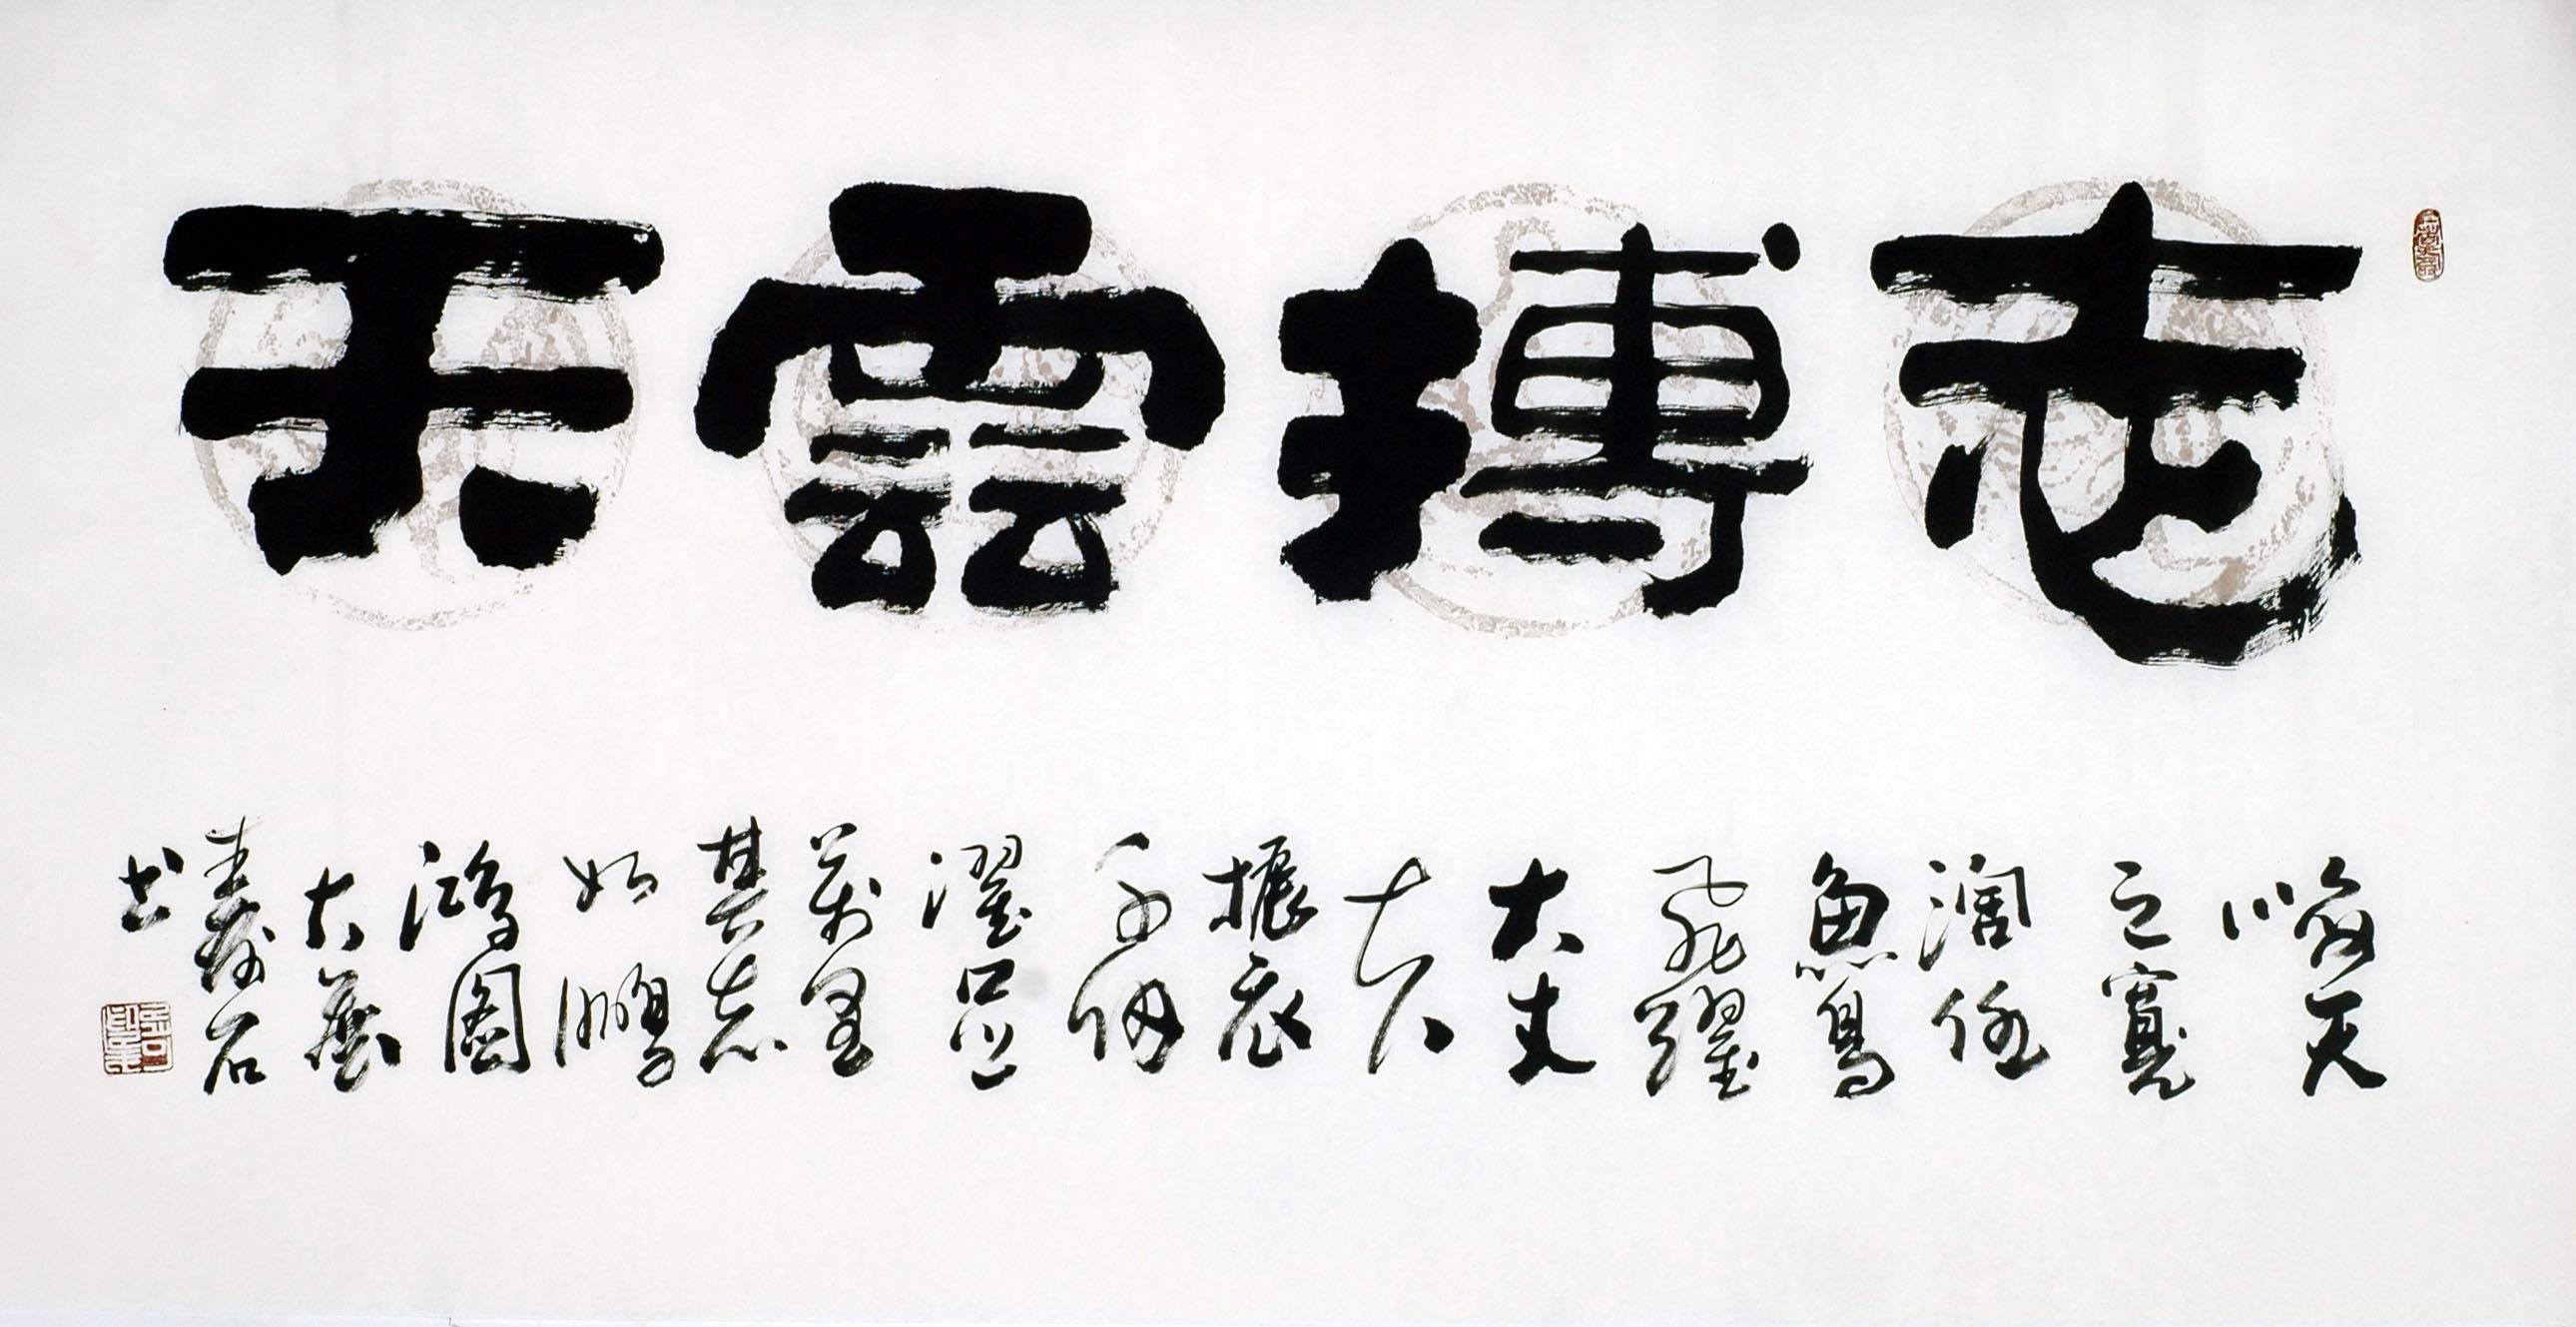 志搏雲天
海天
之寬
濶任
魚鳥
飛躍
大丈
夫
振衣
千仞
濯足
萬里
其志
如鵬
鴻圖
大展
壽石
書